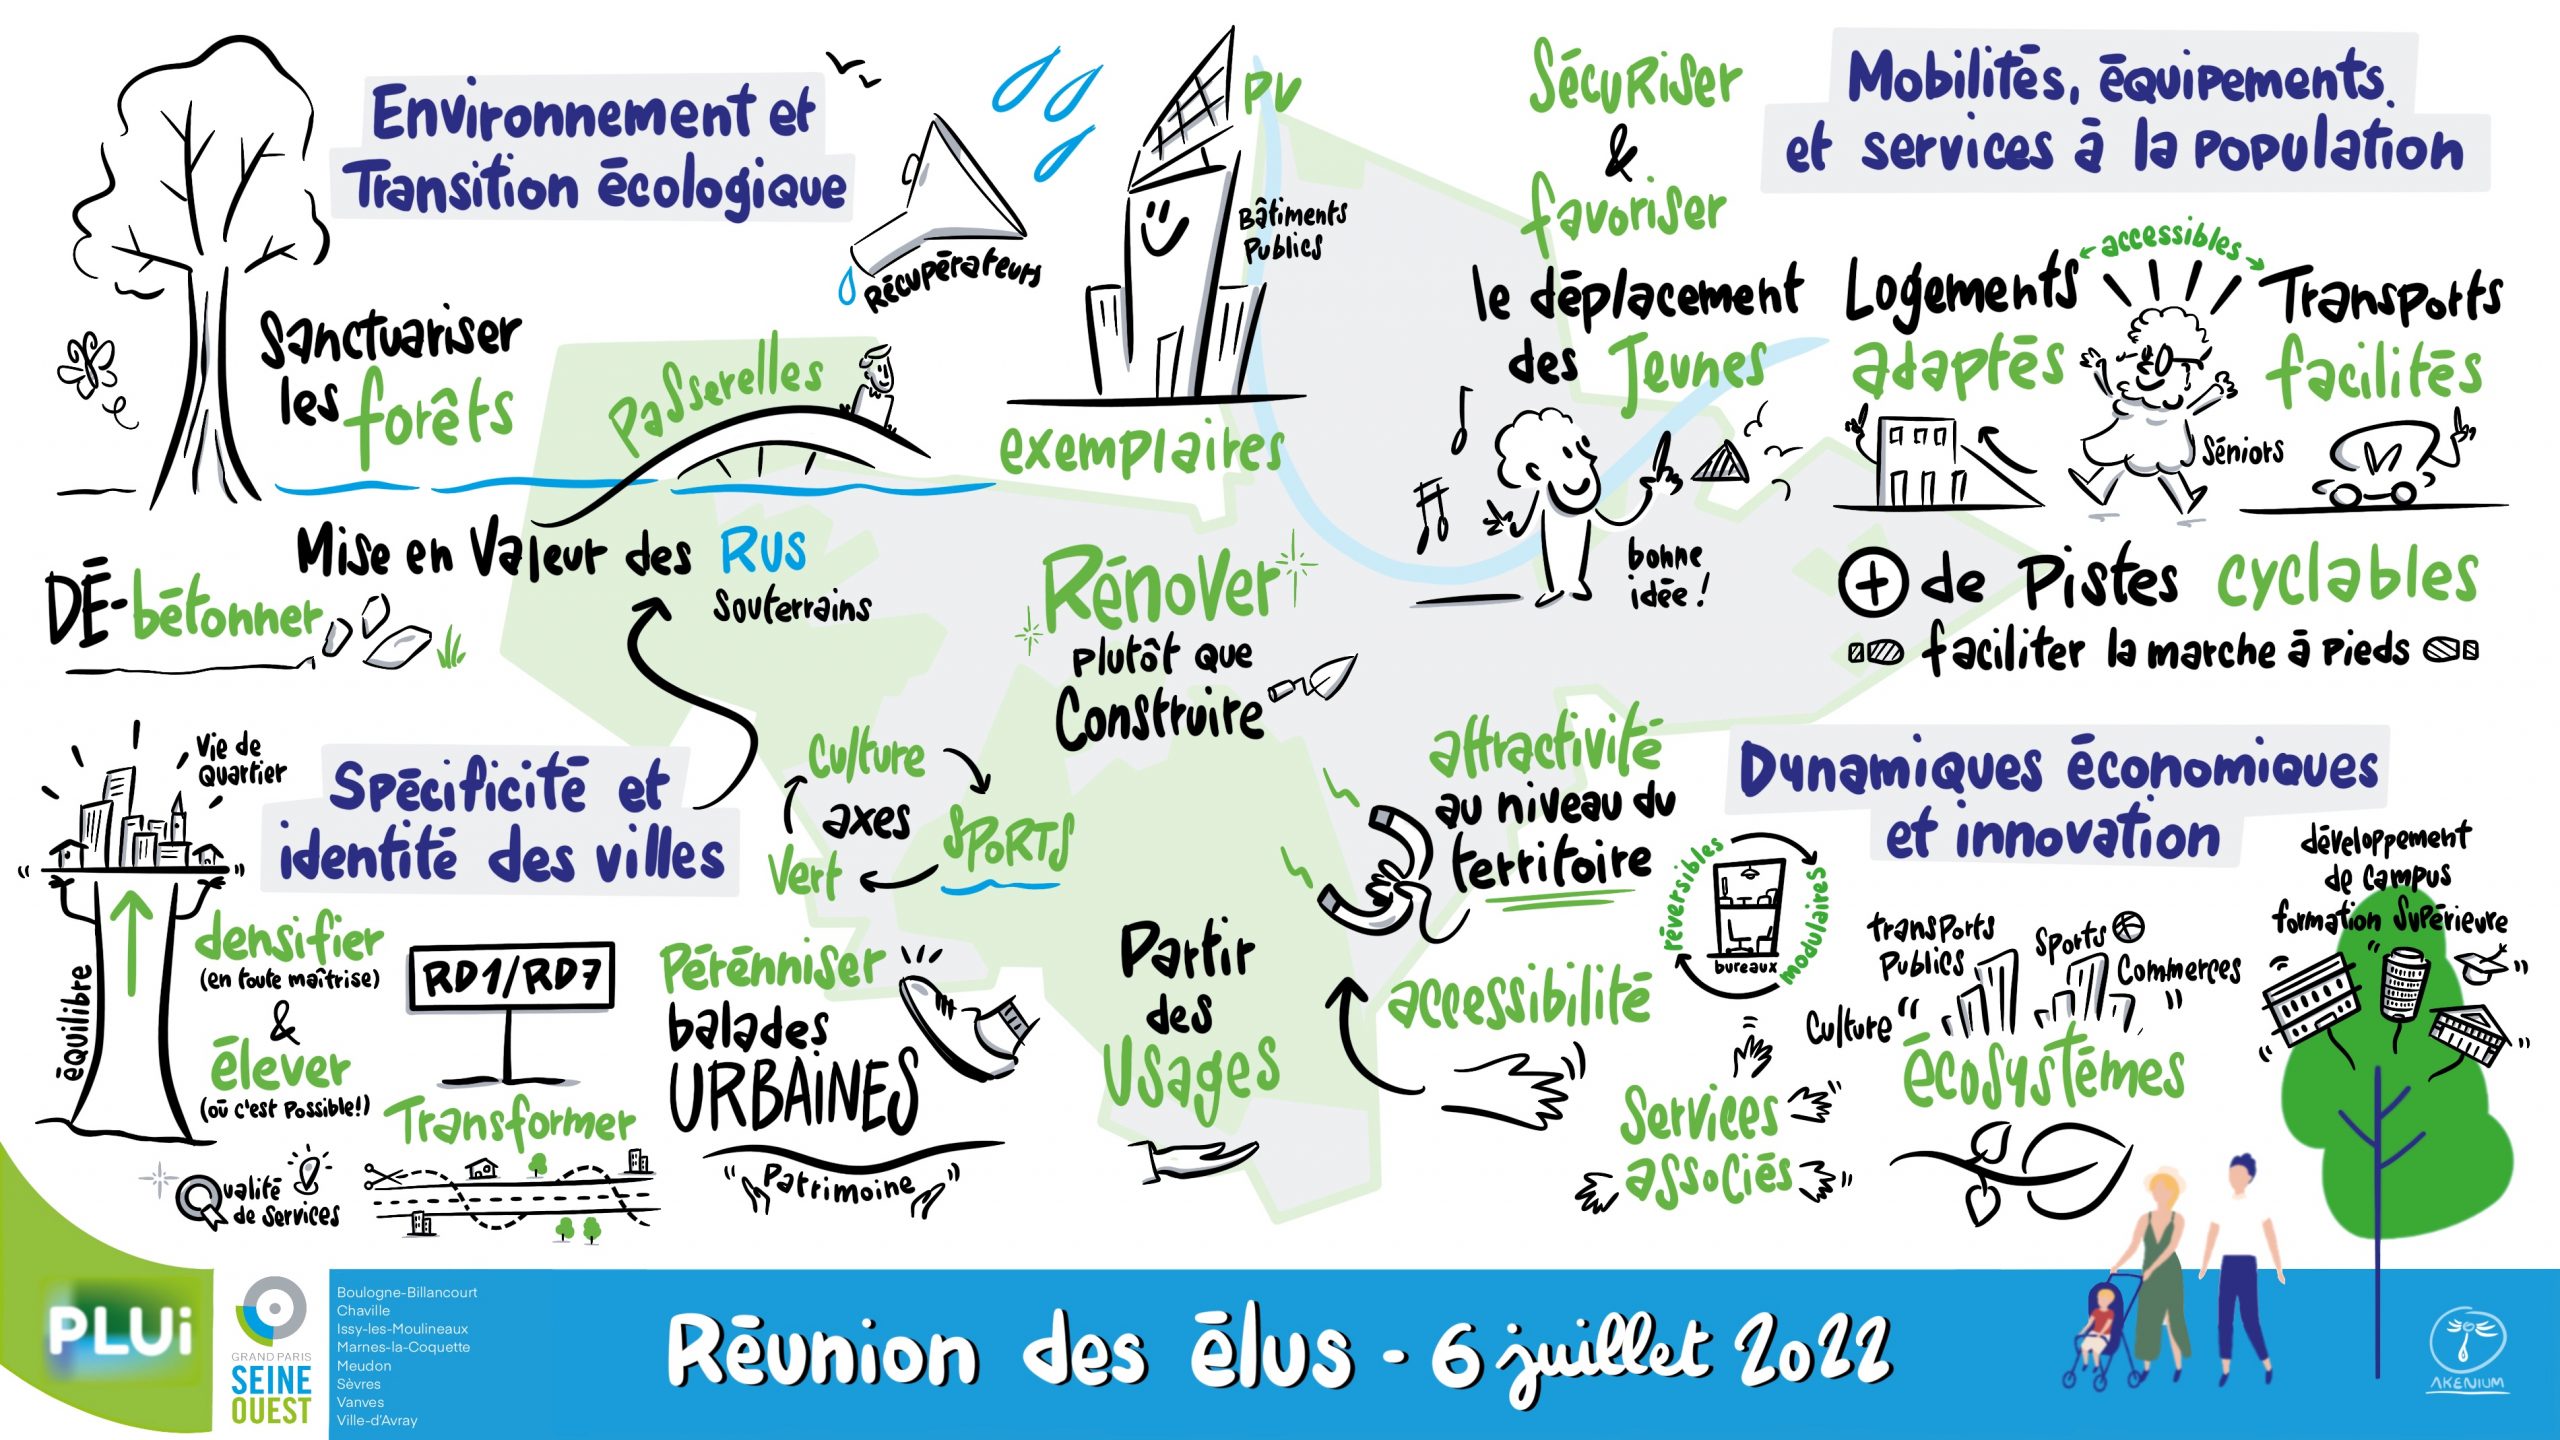 Environnement et
Transition écologique
Sanctuariser
les forêts
Récupérateurs
PV
Bâtiments
Publics
exemplaires
Passerelles
Mise en Valeur des Rus
Souterrains
DÉ-bétonner
Rénover
plutôt que
Construire
Mobilités, équipements
et services à la population
Sécuriser
&
favoriser
le déplacement
des Jeunes
bonne
idée !
Logements
adaptés
accessibles
Transports
facilités
Séniors
+ de Pistes cyclables
faciliter la marche à pieds
Spécificité et
identité des villes
Vie de
Quartier
équilibre
densifier
(en toute maîtrise)
&
élever
(où c'est possible!)
Qualité
de Services
RD1/RD7
Transformer
Culture
axes
SPORTS
Vert
Pérénniser
balades
URBAINES
"Patrimoine"
Partir
des
Usages
Dynamiques économiques
et innovation
attractivité
au niveau du
territoire
accessibilité
réversibles
modulaires
bureaux
Services
associés
transports
Publics
Sports
Commerces
Culture
"écosystèmes"
développement
de Campus
formation Supérieure
PLUi
GRAND PARIS
SEINE
OUEST
Boulogne-Billancourt
Chaville
Issy-les-Moulineaux
Marnes-la-Coquette
Meudon
Sèvres
Vanves
Ville-d'Avray
Réunion des élus - 6 juillet 2022
AKENIUM